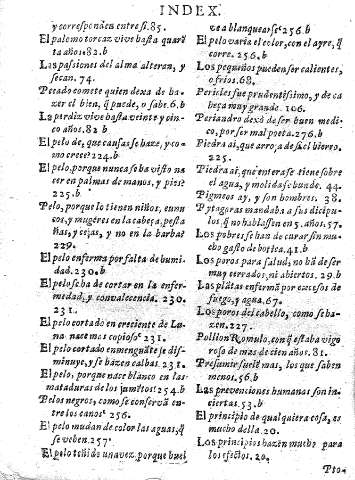 INDEX.
y corresponden entre si. 85.
El palomo torcaz vive hasta quarẽ
ta años. 82. b
Las passiones del alma alteran, y
secan. 74.
Pecado comete quien dexa de ha-
zer el bien, q̃ puede, o sabe. 6. b
La perdiz vive hasta veinte y cin-
co años. 82 b
El pelo de, que causas se haze, y co-
mo crece? 224. b.
El pelo, porque nunca se ha visto na
cer en palmas de manos, y pies?
225. b.
Pelo, porque lo tienen niños, eunu-
cos, y mugeres en la cabeça, pesta
ñas, y cejas, y no en la barba?
229.
El pelo enferma por falta de humi-
dad. 230. b.
El pelo se ha de cortar en la enfer-
medad, y convalecencia. 230.
231.
El pelo cortado en creciente de Lu-
na nace mas copioso? 231.
El pelo cortado en menguãte se dis-
minuye, y se hazen calbas. 231.
El pelo, porque nace blanco en las
mataduras de los jumẽtos? 254. b
Pelos negros, como se conservã en-
tre los canos? 256.
El pelo mudan de color las aguas, q̃
se veben. 257.
El pelo teñido una vez, porque buel
ve a blanquearse? 256. b
El pelo varia el color, con el ayre, q̃
corre. 256. b
Los pequeños pueden ser calientes,
o frios. 68.
Pericles fue prudentissimo, y de ca
beça muy grande. 106.
Periandro dexò de ser buen medi-
co, por ser mal poeta. 276. b
Piedra ai, que arroja de si el hierro.
225.
Piedra ai, que entera se tiene sobre
el agua, y molida se hunde. 44.
Pigmeos ay, y son hombres. 38.
Pytagoras mandaba a sus dicipu-
los q̃ no hablassen en 5. años. 57.
Los pobres se han de curar sin mu-
cho gasto de botica. 41. b
Los poros para salud, no hã de ser
muy cerrados, ni abiertos. 29. b
Las plãtas enfermã por excesos de
fuego, y agua. 67.
Los poros del cabello, como se ha-
zen. 227.
Pollion Romulo, con q̃ estaba vigo
roso de mas de cien años. 81.
Presumir suelẽ mas, los que saben
menos. 56. b
Las prevenciones humanas son in-
ciertas. 53. b
El principio de qualquiera cosa, es
mucho della. 20.
Los principios hazen mucho para
los efectos. 20.
Pro-